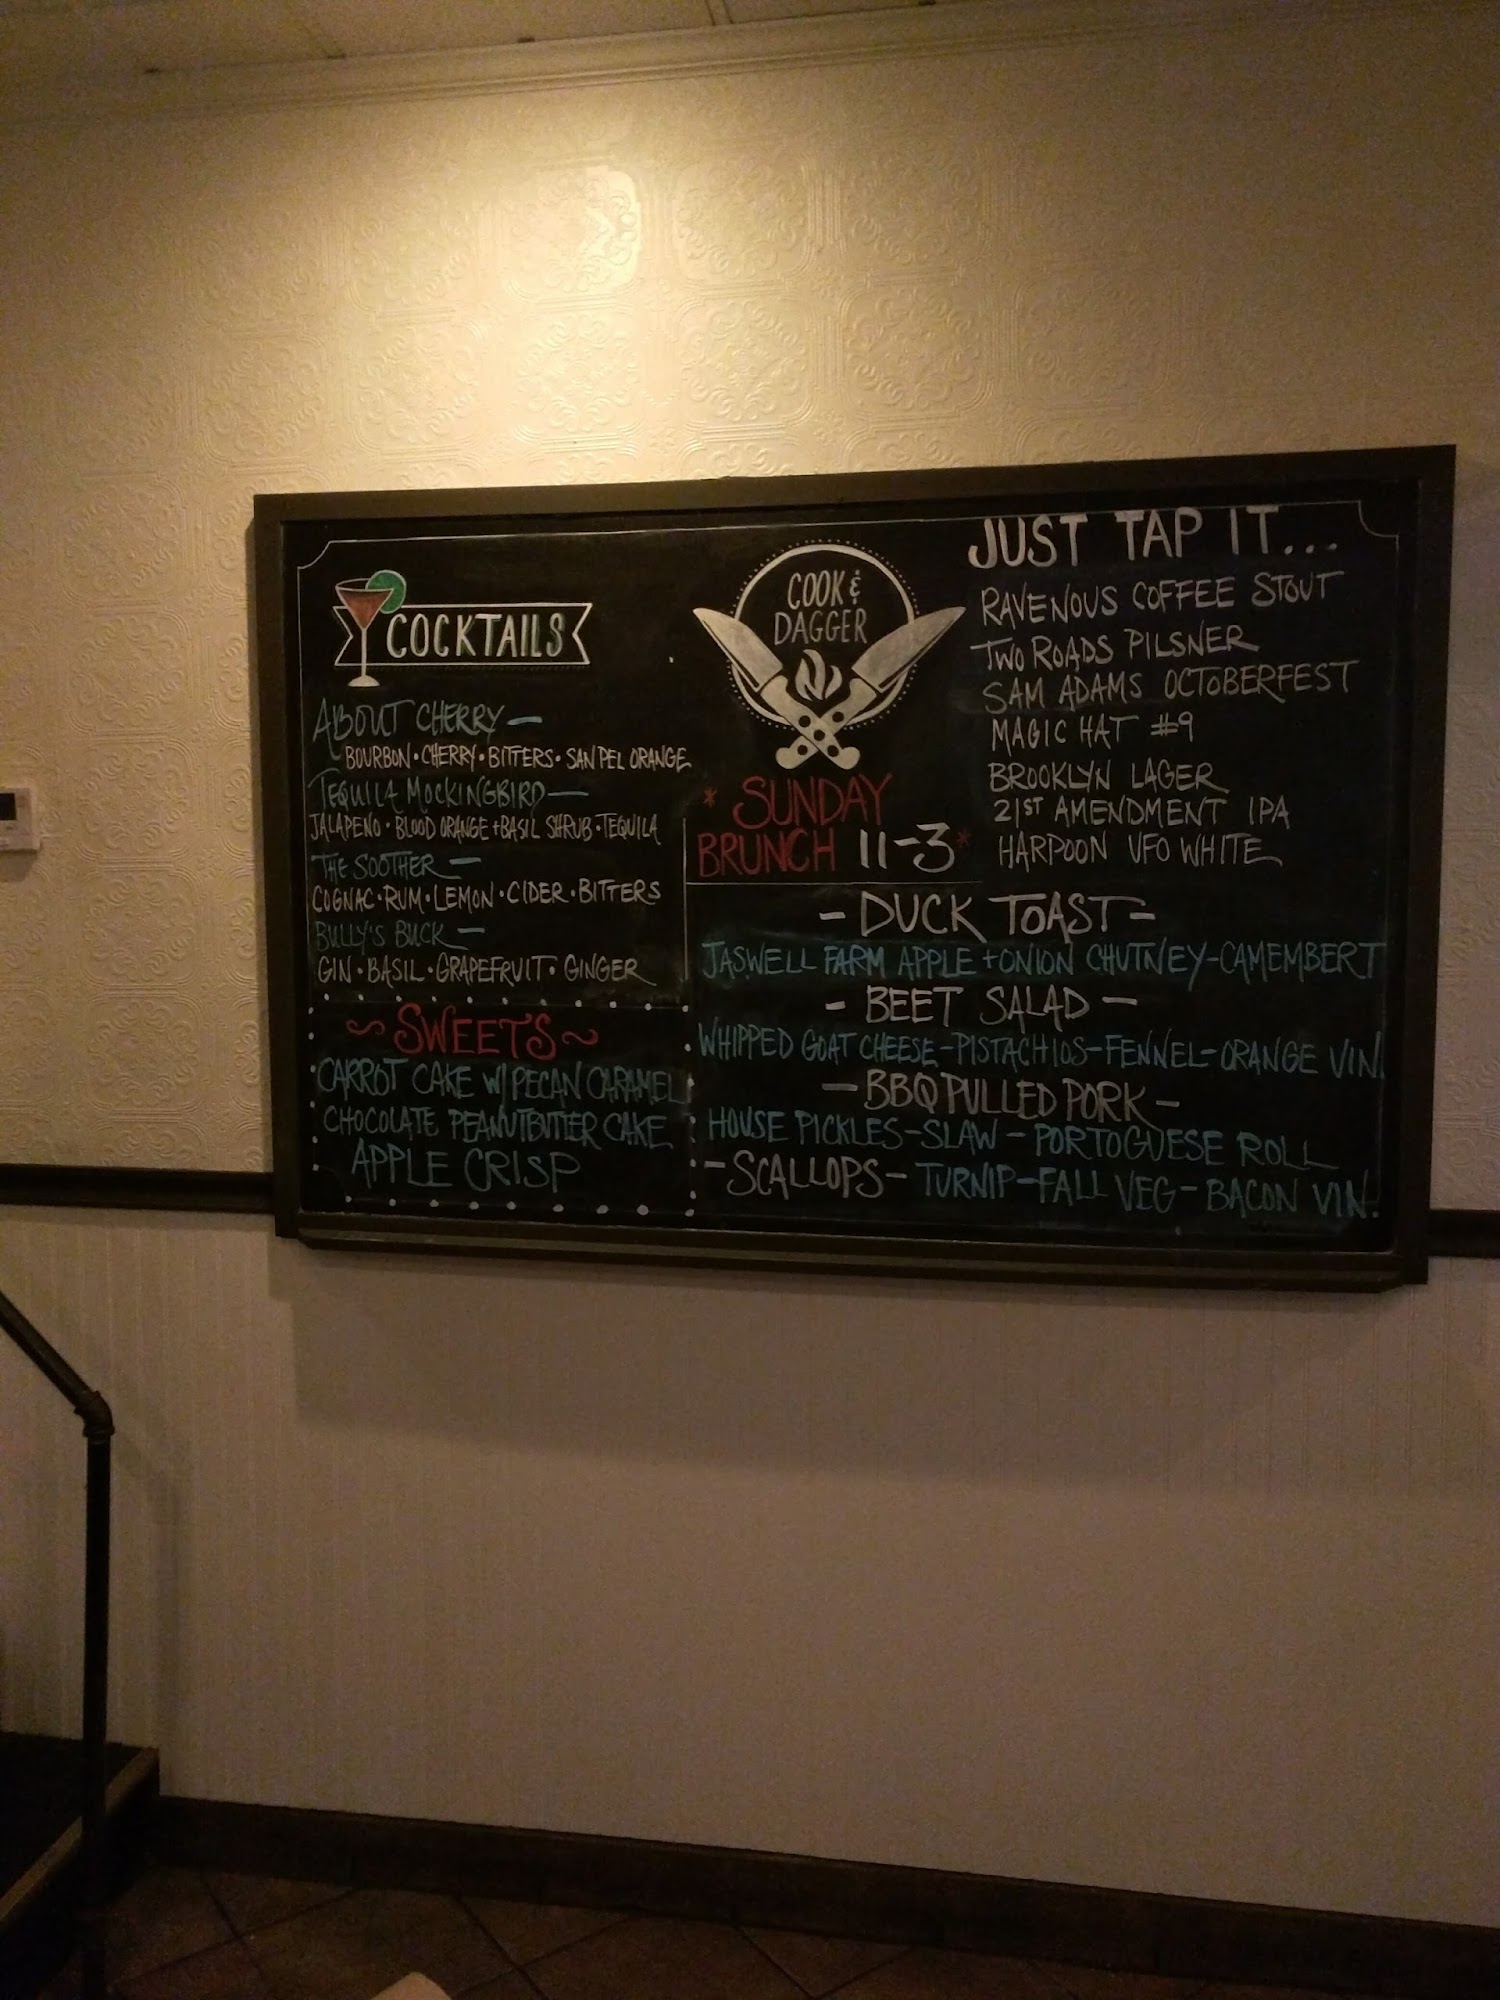 COCKTAILS
ABOUT CHERRY —
BOURBON • CHERRY • BITTERS • SAN PEL ORANGE
TEQUILA MOCKINGBIRD —
JALAPENO • BLOOD ORANGE + BASIL SHRUB • TEQUILA
THE SOOTHER —
COGNAC • RUM • LEMON • CIDER • BITTERS
BULLY'S BUCK —
GIN • BASIL • GRAPEFRUIT • GINGER
~ SWEETS ~
CARROT CAKE W/ PECAN CARAMEL
CHOCOLATE PEANUTBUTTER CAKE
APPLE CRISP
COOK &
DAGGER
* SUNDAY
BRUNCH 11-3 *
JUST TAP IT...
RAVENOUS COFFEE STOUT
TWO ROADS PILSNER
SAM ADAMS OCTOBERFEST
MAGIC HAT #9
BROOKLYN LAGER
21ST AMENDMENT IPA
HARPOON UFO WHITE
- DUCK TOAST -
JASWELL FARM APPLE + ONION CHUTNEY - CAMEMBERT
- BEET SALAD -
WHIPPED GOAT CHEESE - PISTACHIOS - FENNEL - ORANGE VIN.
- BBQ PULLED PORK -
HOUSE PICKLES - SLAW - PORTOGUESE ROLL
- SCALLOPS - TURNIP - FALL VEG - BACON VIN.